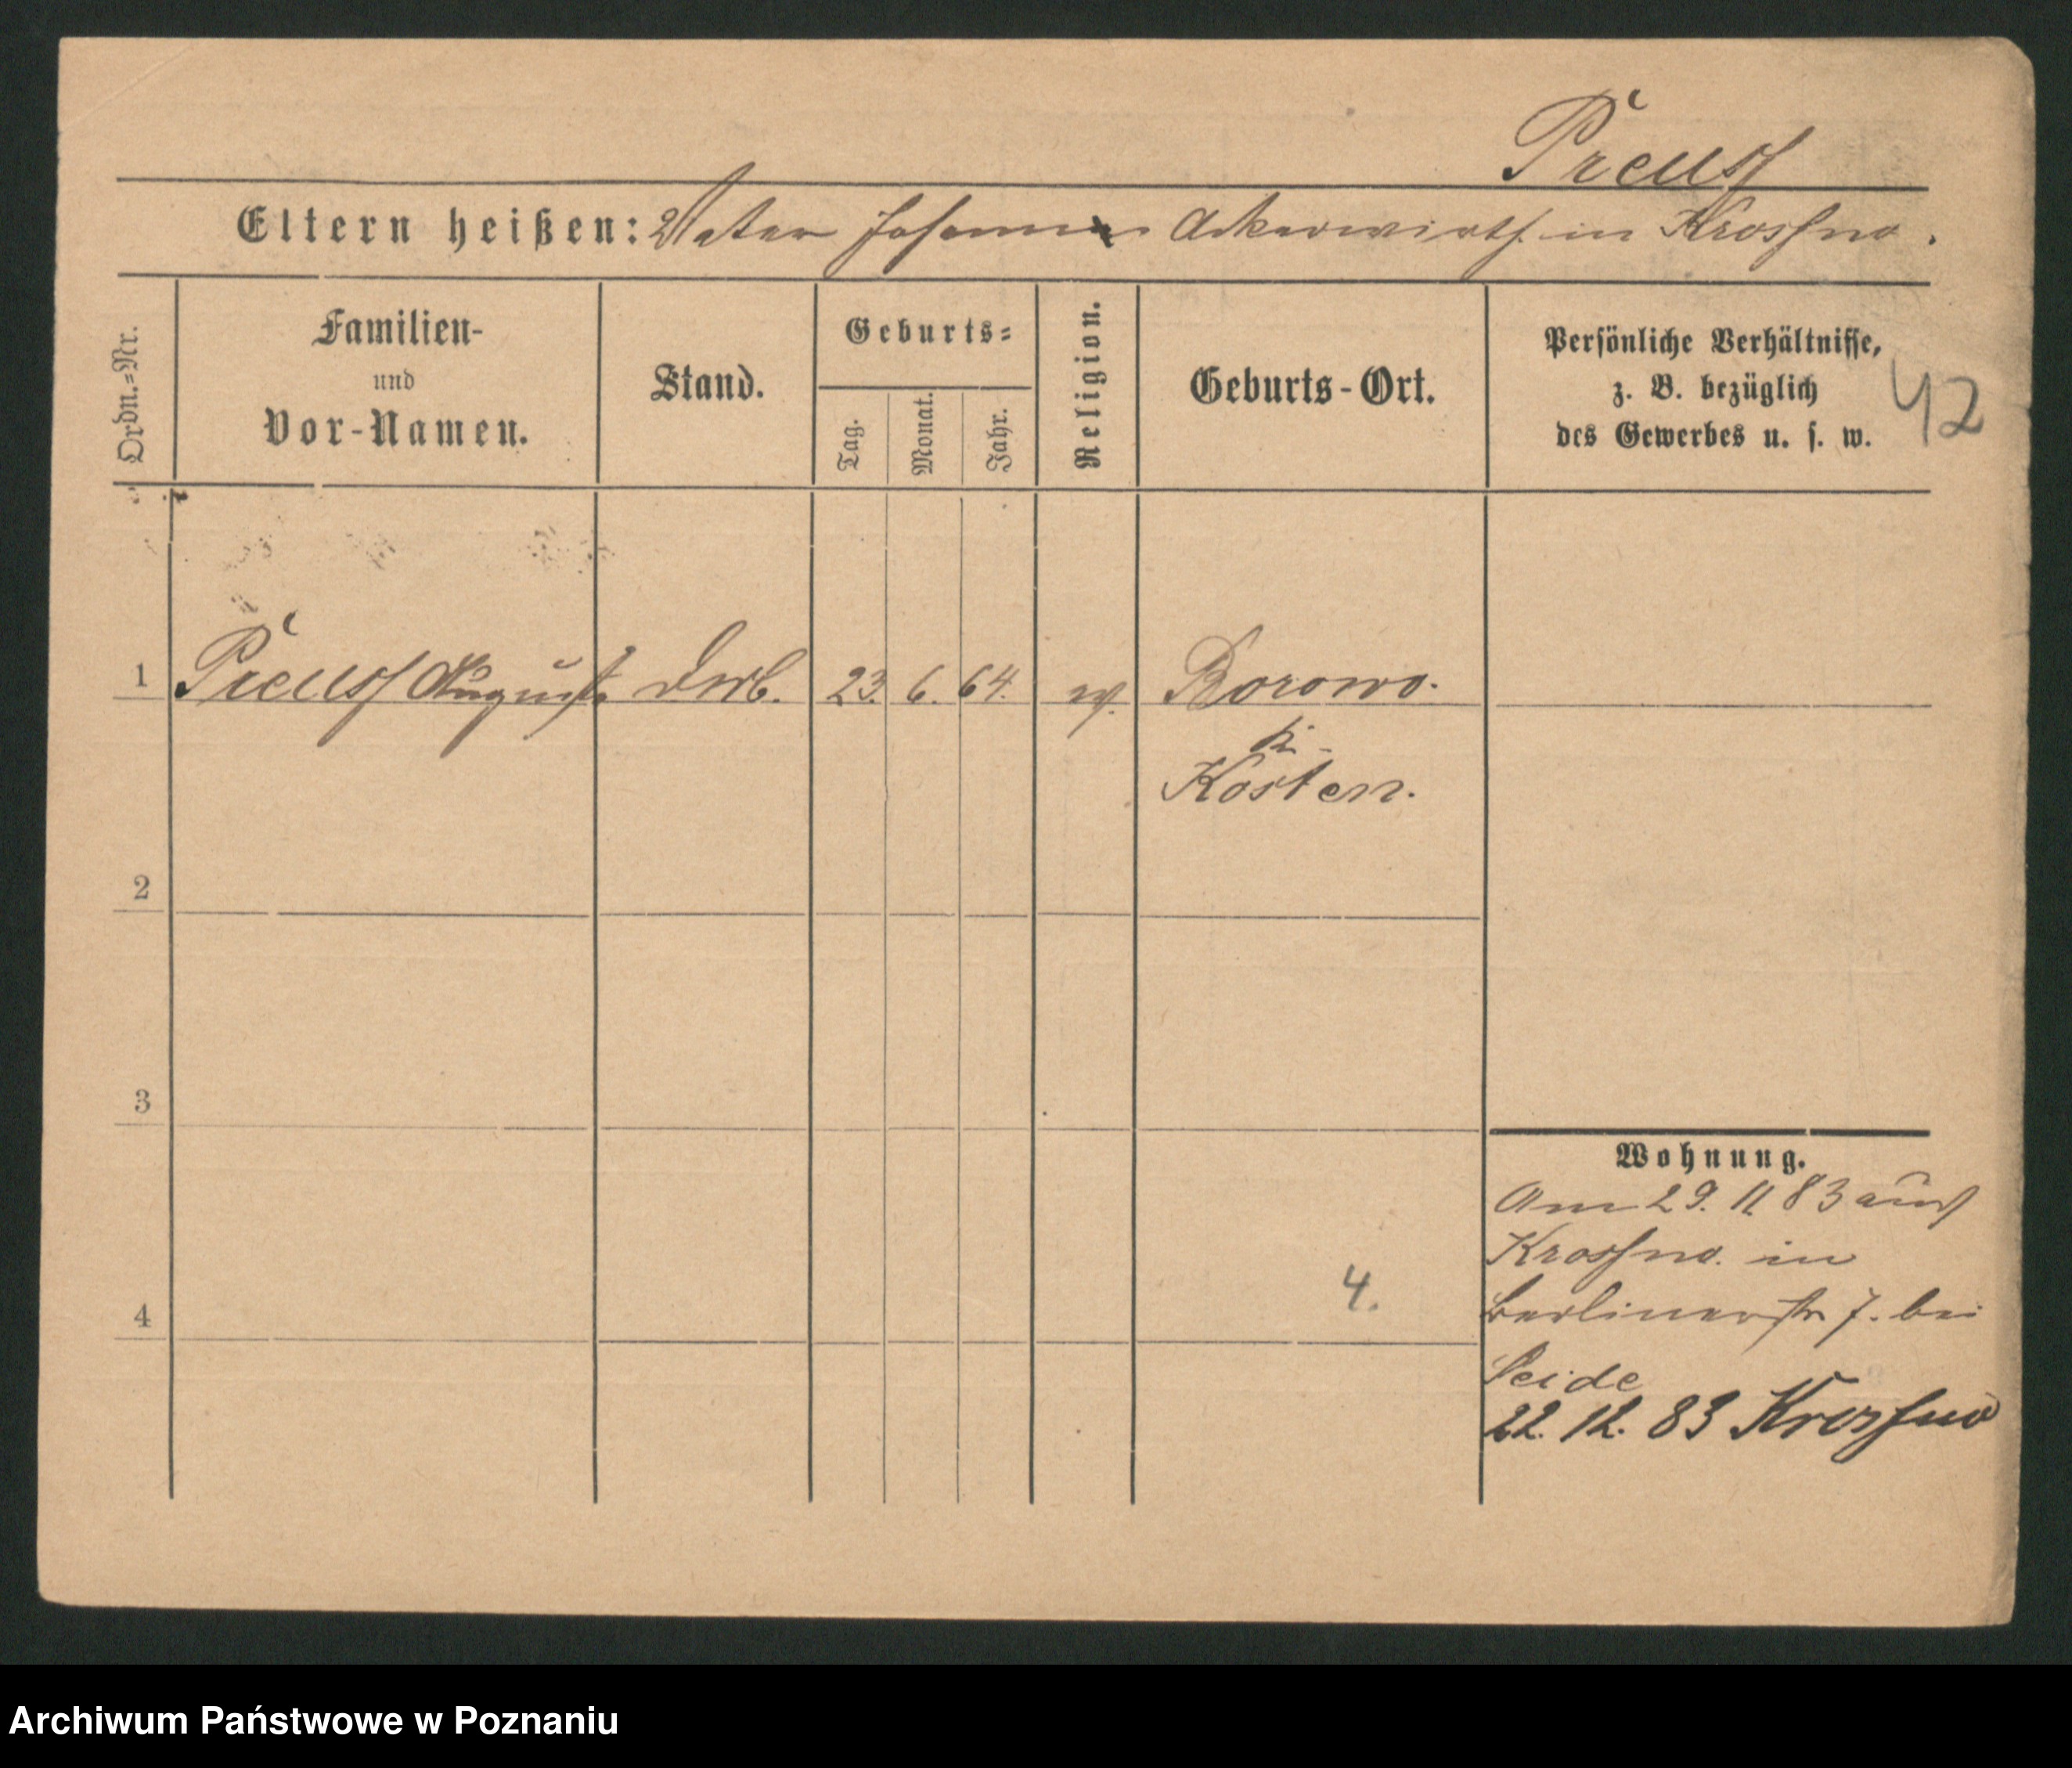 Preuss
Eltern heißen: Vater Johann Ackerwirth in Krossno.
Ordn.=Nr.
Familien-
und
Vor-Namen.
Stand.
Geburts=
Tag.
Monat.
Jahr.
Religion.
Geburts-Ort.
Persönliche Verhältnisse,
z. B. bezüglich
des Gewerbes u. s. w.
42
1 Preuss August 23. 6. 64. Borowo.
Kosten.
2
3
4
4.
Wohnung.
Am 29. 11 83 aus
Krossno. in
Berlinerstr 7. bei
Seide
22. 12. 83 Krossno
Archiwum Państwowe w Poznaniu